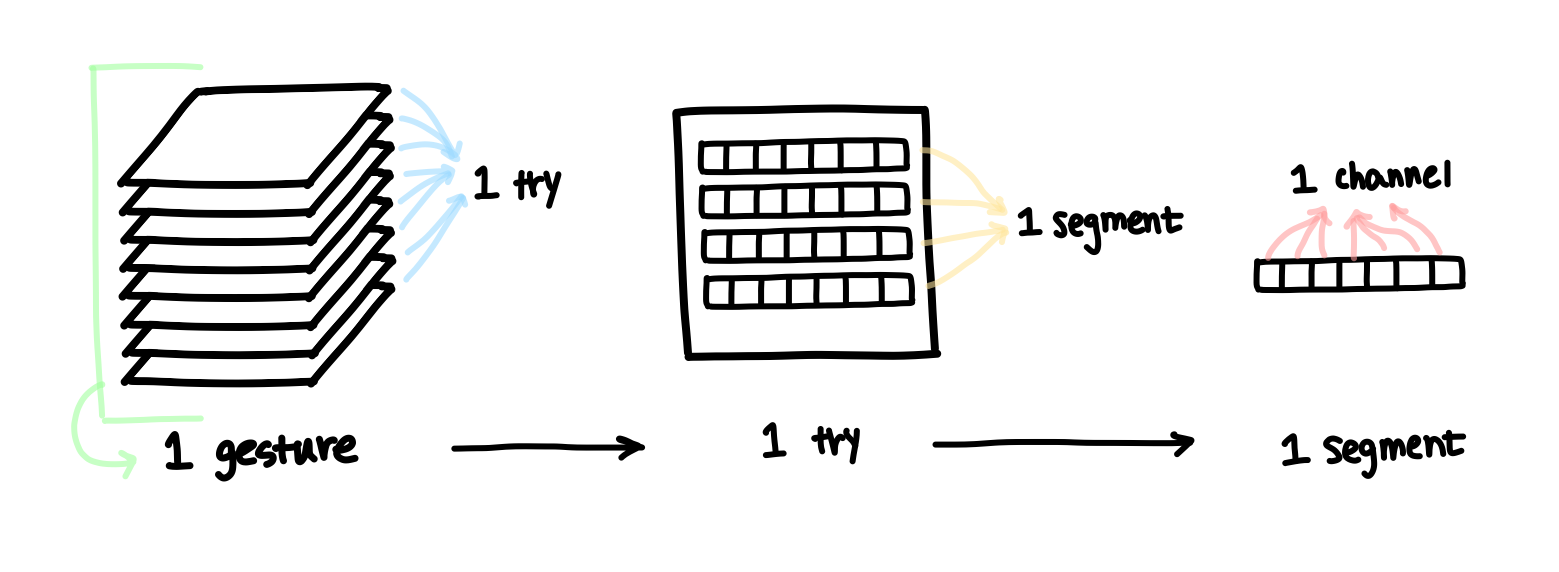 1 try
1 segment
1 channel
1 gesture
1 try
1 segment